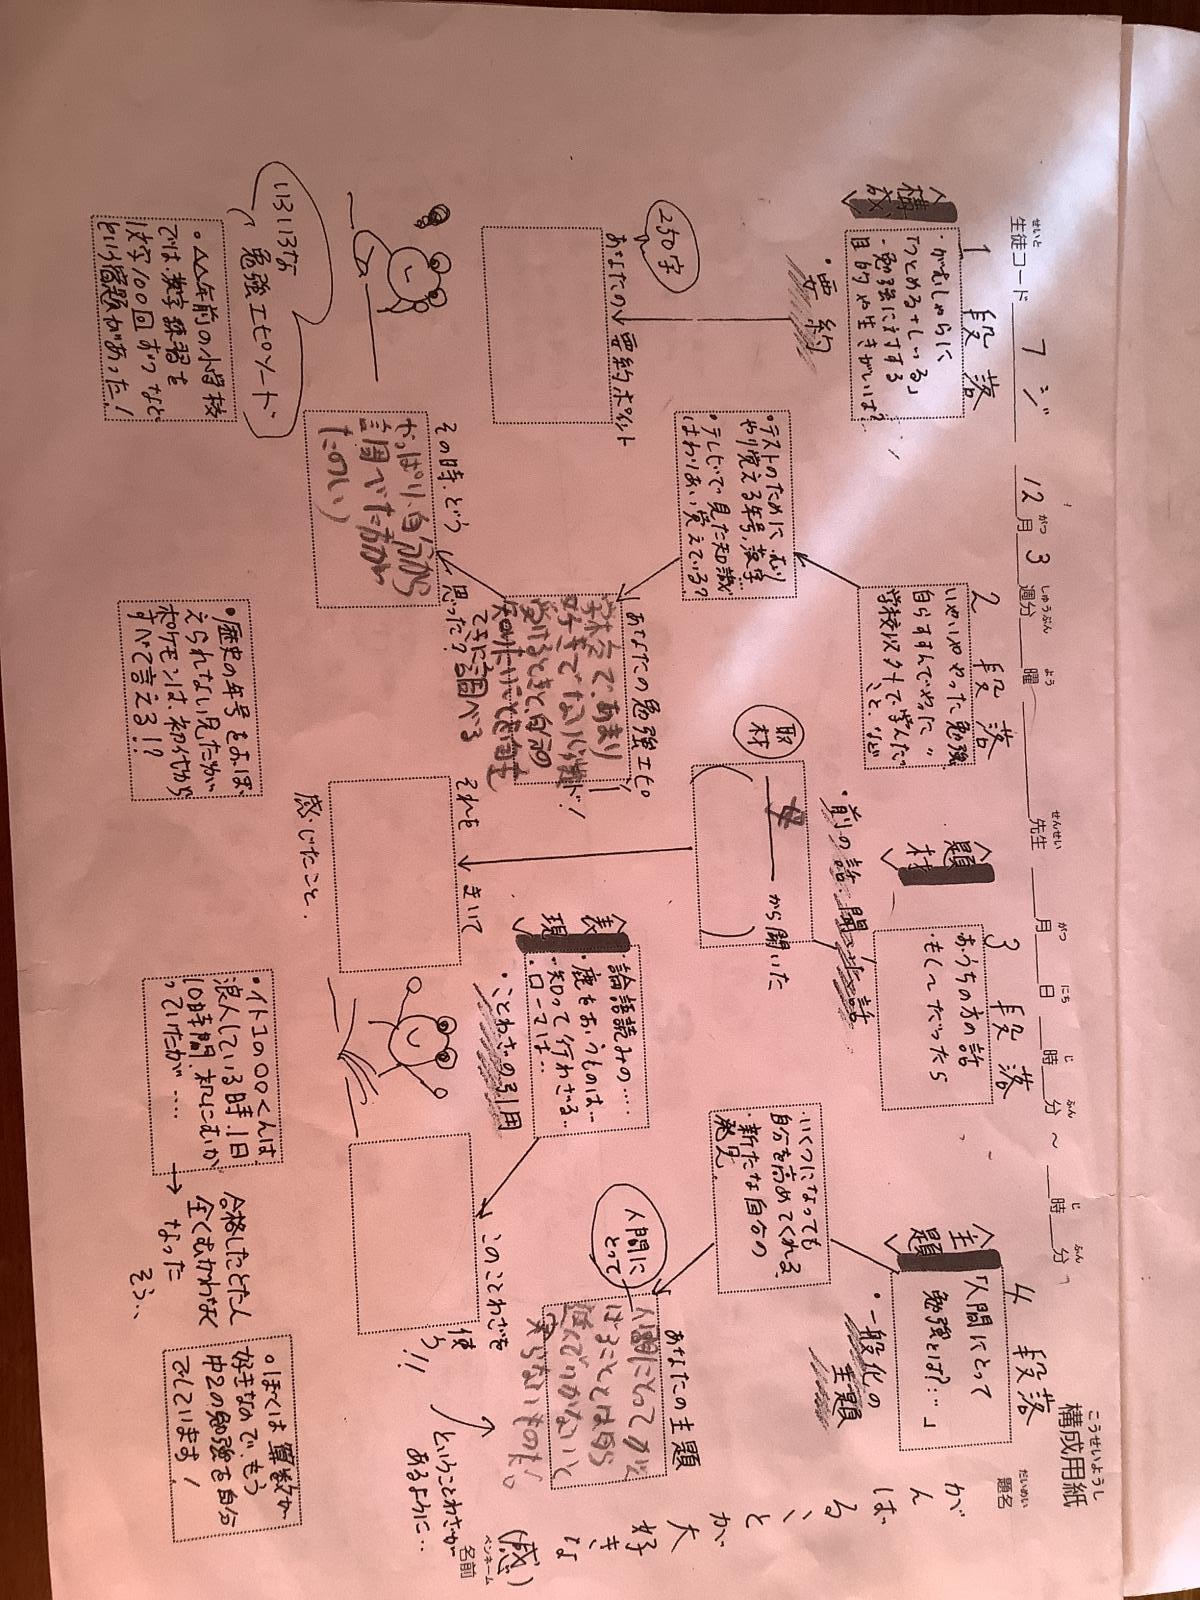 構成用紙
こうせいようし
生徒コード フジ 12月3週分 曜 先生 月 日 時 分 ～ 時 分
せいと がつ しゅうぶん よう せんせい がつ にち じ ふん じ ふん
題名
だいめい
がんばる、とが大好きな(感)
名前
ペンネーム
1段落
<構成>
・がむしゃらに
「つとめる+しいる」
・勉強に対する
目的や生きがいは?
・要約
250字
あなたの要約ポイント
2段落
いやいややった勉強
自らすすんでやった〃
学校以外で学んだ
こと、など
・テストのために、むり
やり覚える年号、漢字…
・テレビでで見た知識
はわりあい覚えている?
あなたの勉強エピソード!
学校で、あまり
好きでない
受けるときと、自分の
知りたいことを自主
てきに調べる
その時、どう思った?
やっぱり、自分から
調べた方が
たのしい
3段落
おうちの方の話
もく~だったら
<題材>
・前の話 聞いた話
取材
母から聞いた
それをきいて
感じたこと.
<表現>
・論語読みの……
・鹿をおうものは…
・知って行わざる…
・ローマは…
・ことわざの引用
このことわざを
使う!!
ということわざが
あるように…
4段落
<主題>
「人間にとって
勉強とは?…」
・一般化の
主題
・いくつになっても
自分を高めてくれる
・新たな自分の
発見.
人間に
とって
あなたの主題
人間にとって
いろいろな
勉強エピソード
・△△年前の小学校
では、数字練習を
1文字100回ずつなど
という宿題があった!
・歴史の年号をおぼ
えられない兄だが
ポケモンは、初代から
すべて言える!?
・イトコの〇〇くんは
浪人している時、1日
10時間、机にむか
っていたが……
→合格したとたん
全くむかわなく
なった
そう…
・ぼくは算数が
好きなので、もう
中2の勉強を自分
でしています!